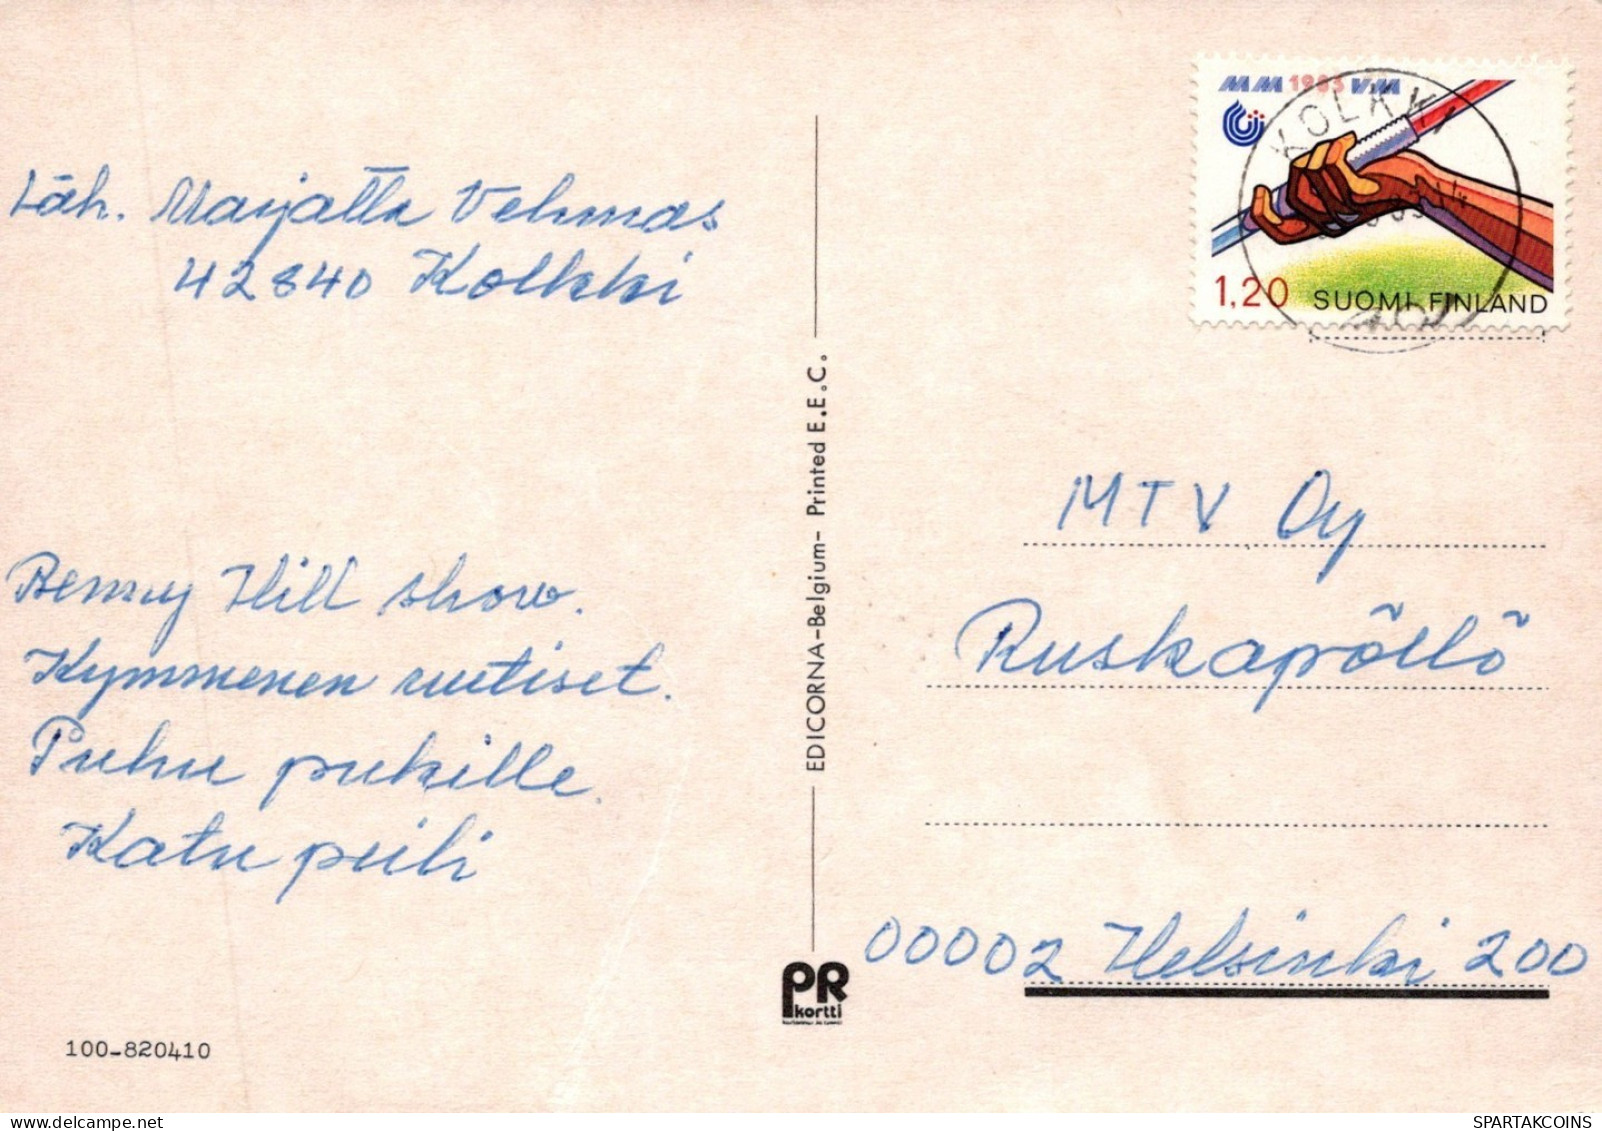 Läh. Marjatta Vehmas
42840 Kolkki
Benny Hill show.
Kymmenen uutiset.
Puhu pukille.
Katupeili
100-820410
EDICORNA-Belgium- Printed E.E.C.
PR
kortti
MM 1983 VM
KOLKKI
1,20 SUOMI FINLAND
MTV Oy
Ruskapöllö
00002 Helsinki 200
SPARTAKCOINS